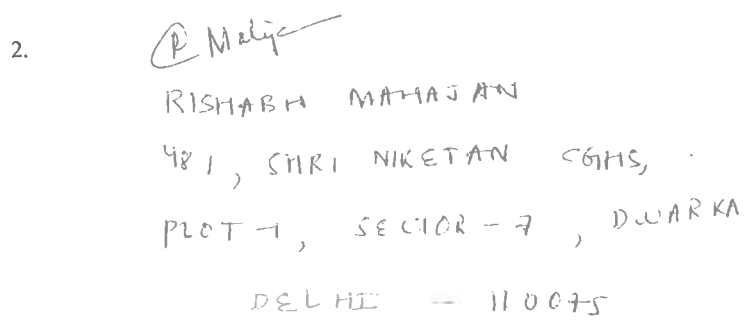 2.
RISHABH MAHAJAN
481, SHRI NIKETAN CGHS,
PLOT-1, SECTOR-7, DWARKA
DELHI - 110075